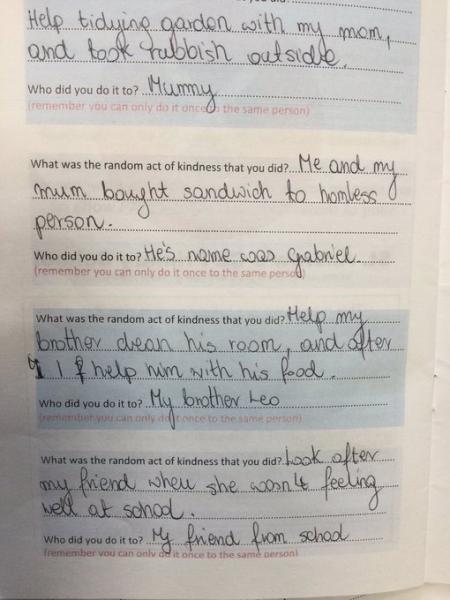 Help tidying garden with my mom,
and took rubbish outside.
Who did you do it to? Mummy
(remember you can only do it once to the same person)
What was the random act of kindness that you did? Me and my
mum bought sandwich to homless
person.
Who did you do it to? He's name was Gabriel.
(remember you can only do it once to the same person)
What was the random act of kindness that you did? Help my
brother clean his room, and after
I help him with his food.
Who did you do it to? My brother Leo
(remember you can only do it once to the same person)
What was the random act of kindness that you did? Look after
my friend when she wasn't feeling
well at school.
Who did you do it to? My friend from school
(remember you can only do it once to the same person)